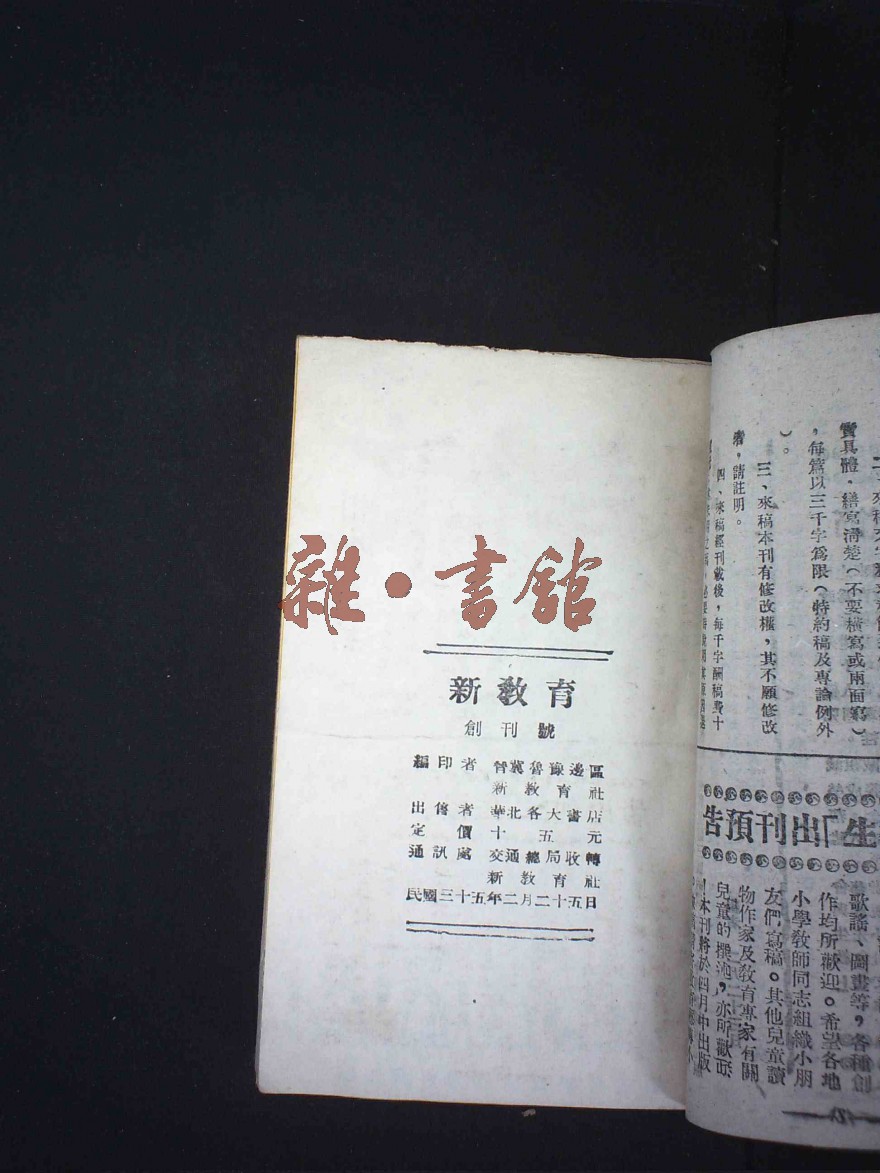 雜·書舘
新教育
創刊號
編印者 晉冀魯豫邊區
新教育社
出售者 華北各大書店
定價十五元
通訊處 交通總局收轉
新教育社
民國三十五年二月二十五日
實具體，繕寫清楚（不要橫寫或兩面寫）
，每篇以三千字爲限（特約稿及專論例外
）。
三、來稿本刊有修改權，其不願修改
者，請註明。
四、來稿經刊載後，每千字酬稿費十
生「出刊預告
歌謠、圖畫等，各種創
作均所歡迎。希望各地
小學教師同志組織小朋
友們寫稿。其他兒童讀
物作家及教育專家有關
兒童的撰述，亦所歡迎
本刊將於四月中出版